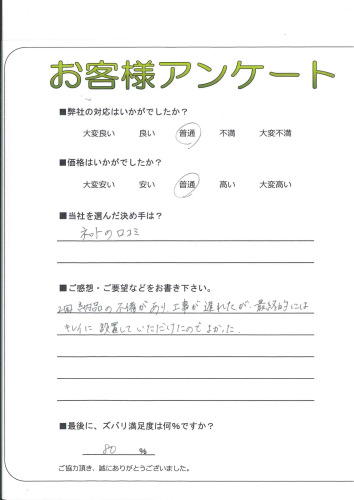 お客様アンケート
■弊社の対応はいかがでしたか?
大変良い 良い 普通 不満 大変不満
■価格はいかがでしたか?
大変安い 安い 普通 高い 大変高い
■当社を選んだ決め手は?
ネットの口コミ
■ご感想・ご要望などをお書き下さい。
2回納品の不備があり、工事が遅れたが、最終的には
キレイに設置していただけたのでよかった。
■最後に、ズバリ満足度は何%ですか?
80 %
ご協力頂き、誠にありがとうございました。